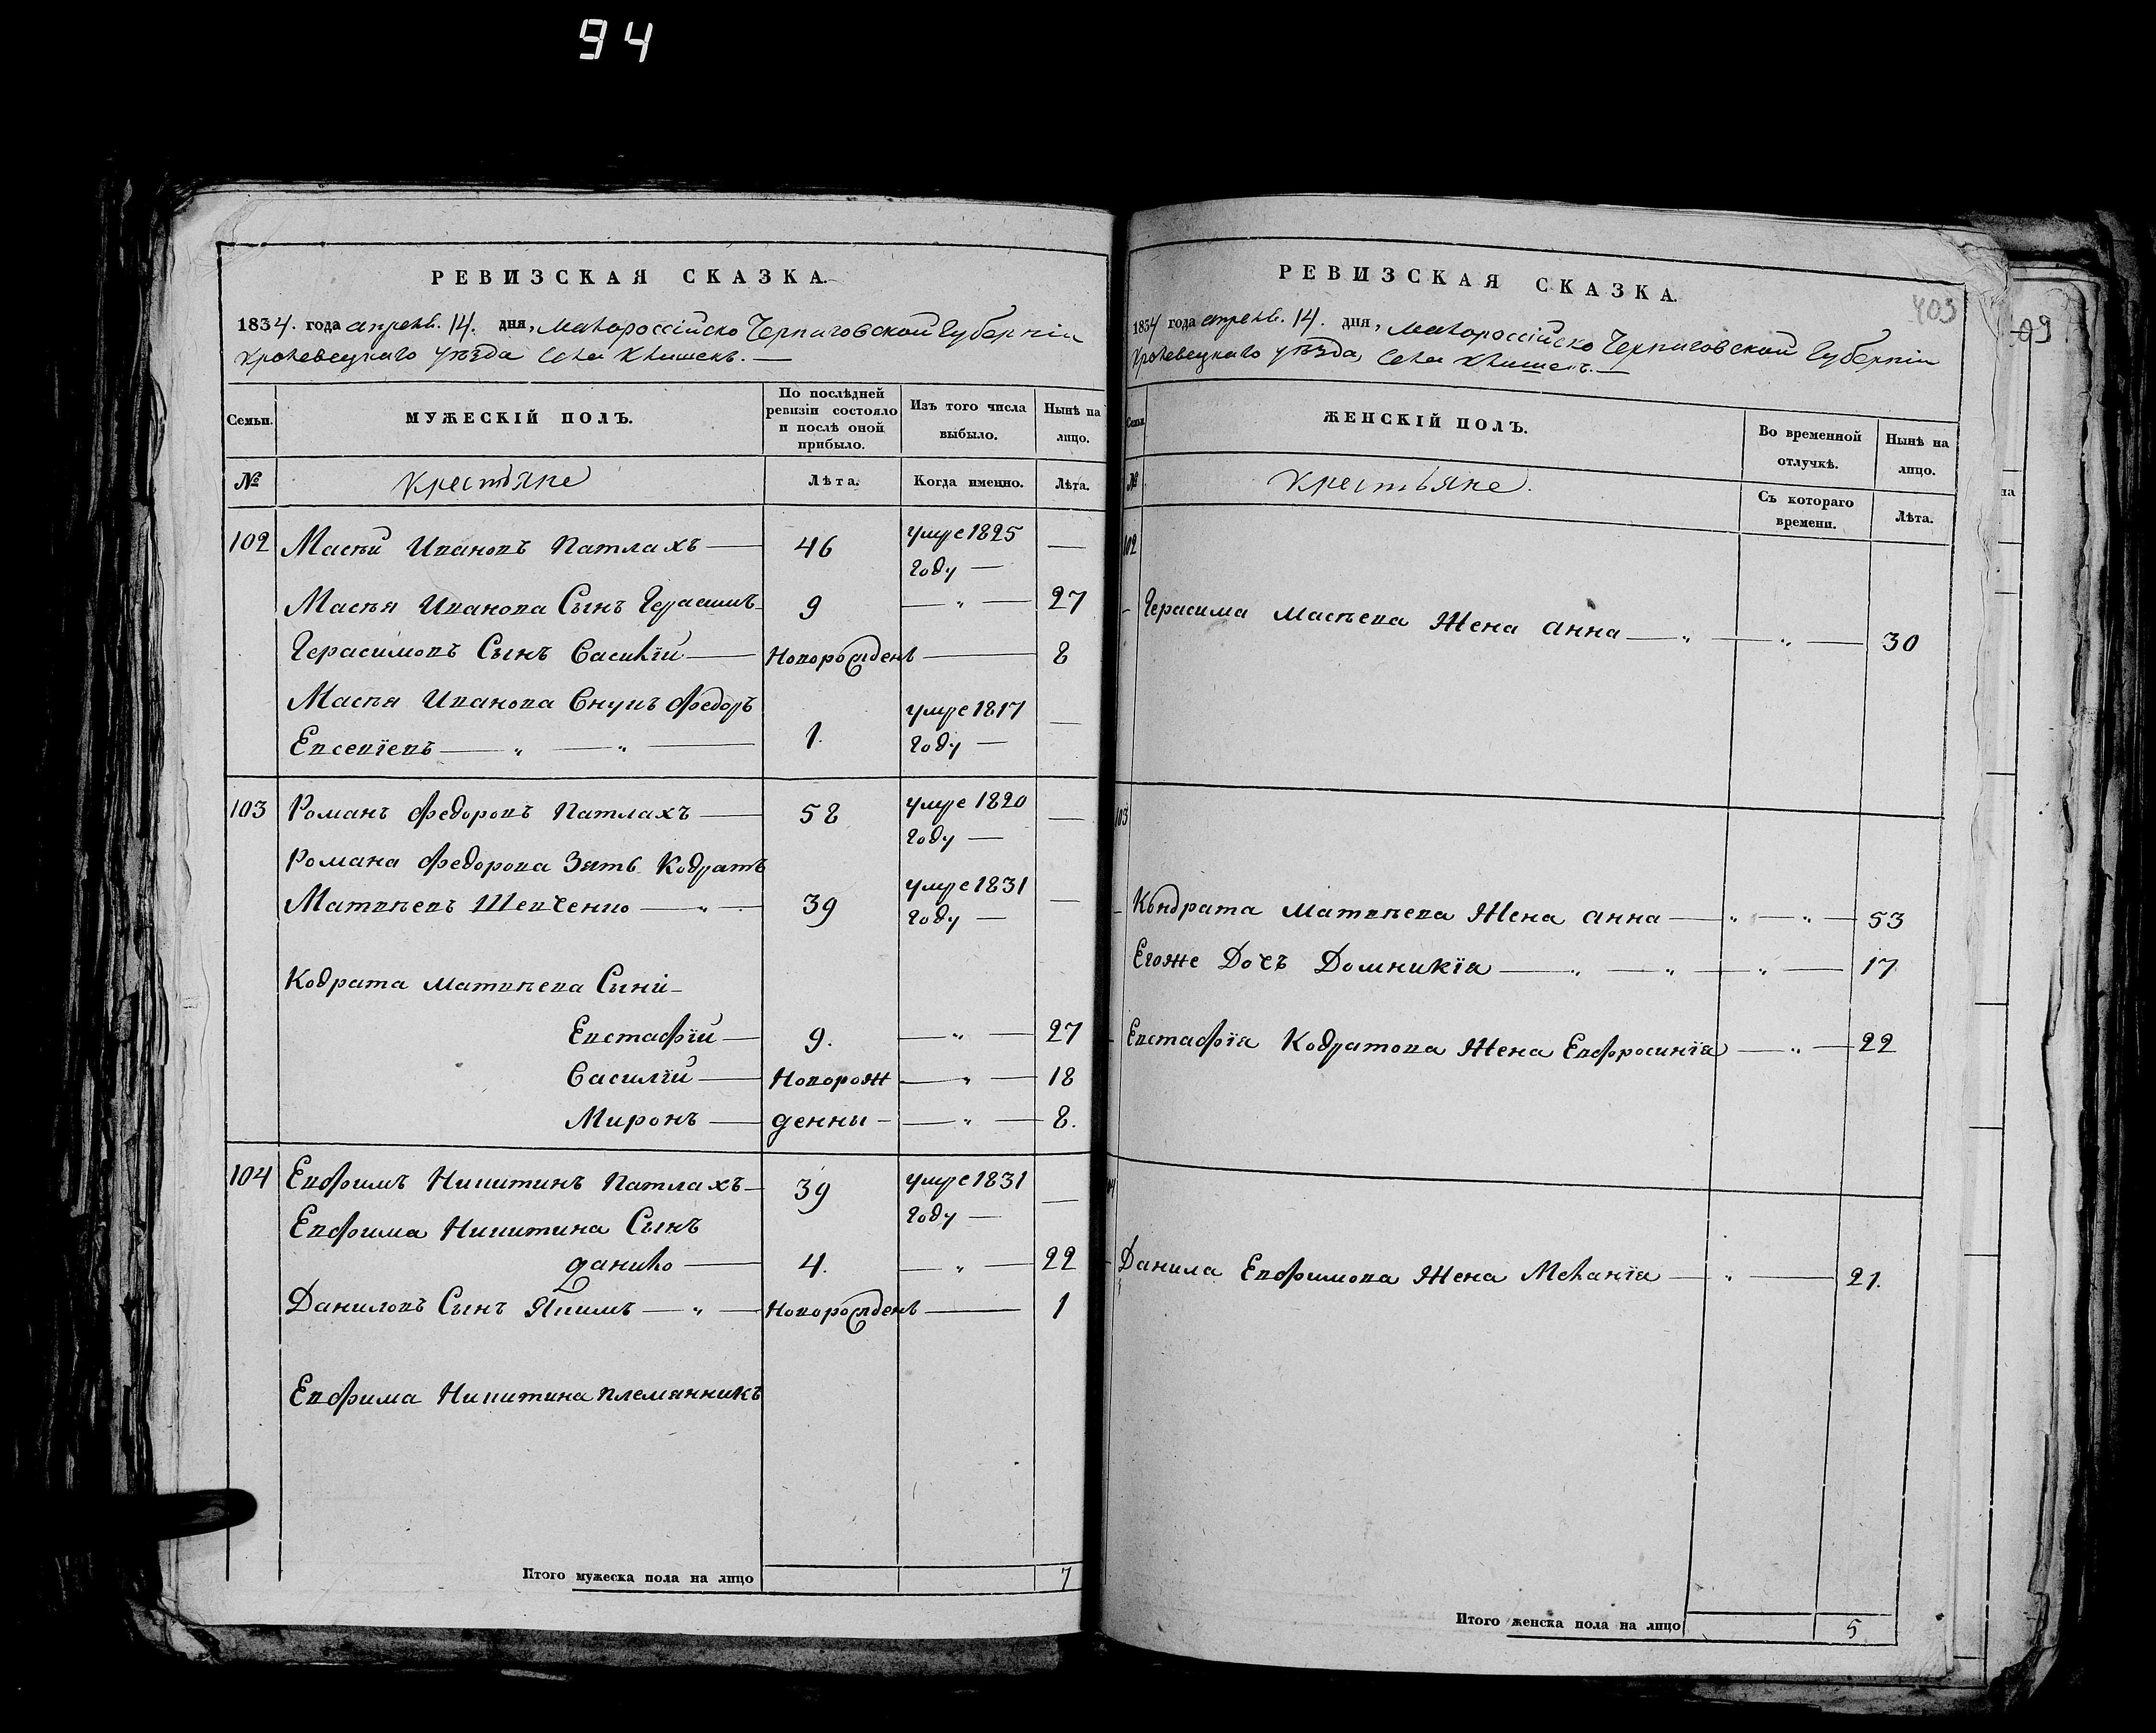 94
РЕВИЗСКАЯ СКАЗКА.
1834. года апреля. 14. дня, Малороссійско Черниговской Губерніи
Кролевецкаго уѣзда Села Клишекъ.
Семьи. МУЖЕСКІЙ ПОЛЪ. По послѣдней ревизіи состояло и послѣ оной прибыло. Изъ того числа выбыло. Нынѣ на лицо.
№ Крестьяне Лѣта. Когда именно. Лѣта.
102 Масѣй Ивановъ Патлахъ — 46 умре 1825 году — —
Масѣя Иванова Сынъ Герасимъ 9 — „ — 27
Герасимовъ Сынъ Василій — Новорожденъ — 8
Масѣя Иванова Внукъ Федоръ
Евсевіевъ — „ — „ — 1. умре 1817 году — —
103 Романъ Федоровъ Патлахъ — 58 умре 1820 году — —
Романа Федорова Зять Кодратъ
Матвѣевъ Шевченко — „ — 39 умре 1831 году — —
Кодрата Матвѣева Сыни
Евстафій — 9. — „ — 27
Василій — Новорож — „ — 18
Миронъ — денны — — „ — 8.
104 Евфимъ Никитинъ Патлахъ — 39 умре 1831 году — —
Евфима Никитина Сынъ
Данило — 4. — „ — 22
Даниловъ Сынъ Якимъ — „ — Новорожденъ — 1
Евфима Никитина племянникъ
Итого мужеска пола на лицо 7
РЕВИЗСКАЯ СКАЗКА.
403
1834 года апреля. 14. дня, Малороссійско Черниговской Губерніи
Кролевецкаго уѣзда, Села Клишекъ.
Семьи. ЖЕНСКІЙ ПОЛЪ. Во временной отлучкѣ. Нынѣ на лицо.
№ Крестьяне. Съ котораго времени. Лѣта.
102
Герасима Масѣева Жена Анна — „ — „ — 30
103
Кондрата Матвѣева Жена Анна — „ — „ — 53
Егоже Дочъ Домникія — „ — „ — „ — 17
Евстафія Кодратова Жена Евфросинія — „ — 22
Данила Евфимова Жена Меланія — „ — 21.
Итого женска пола на лицо 5
09